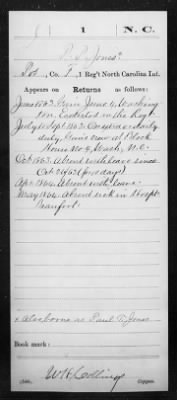 J 1 N.C.
P. T. Jones*
Pvt., Co. F, 1 Reg't North Carolina Inf.
Appears on Returns as follows:
June 1863 From June 6, Washing-
ton. Enlisted in the Regt.
July to Sept 1863 On extra or daily
duty, Gun's crew at Block
House No 4, Wash, N.C.
Oct 1863. Absent with leave since
Oct
Apr 1864. Absent with leave.
May 1864. Absent sick in Hospt.
Beaufort.
* Also borne as Paul T. Jones
Book mark:
W H Collings
Copyist.